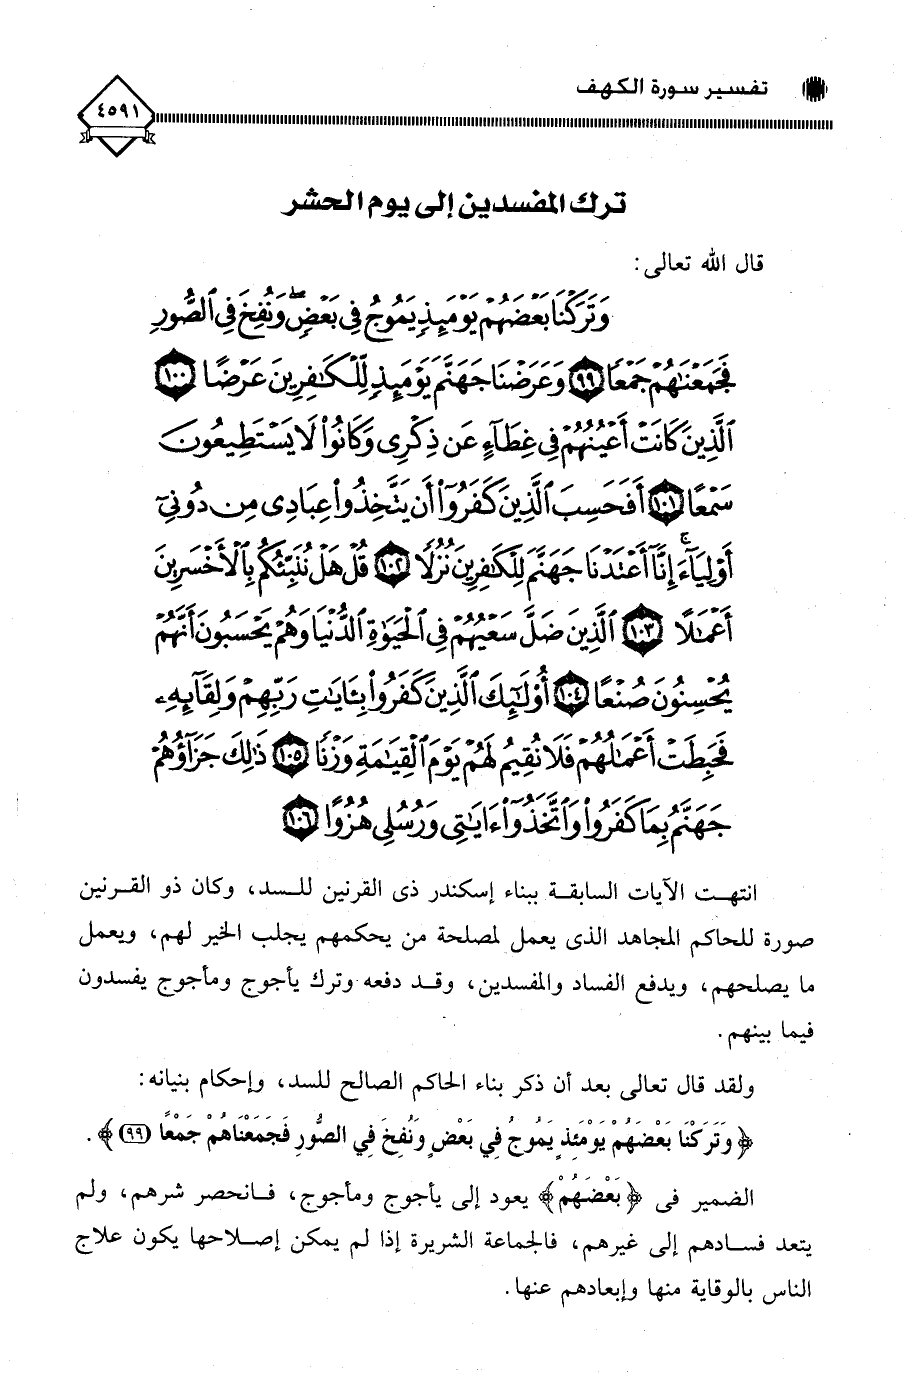 تفسير سورة الكهف
٤٥٩١
ترك المفسدين إلى يوم الحشر
قال الله تعالى:
وَتَرَكْنَا بَعْضَهُمْ يَوْمَئِذٍ يَمُوجُ فِي بَعْضٍ ۖ وَنُفِخَ فِي ٱلصُّورِ
فَجَمَعْنَٰهُمْ جَمْعًا ٩٩ وَعَرَضْنَا جَهَنَّمَ يَوْمَئِذٍ لِّلْكَٰفِرِينَ عَرْضًا ١٠٠
ٱلَّذِينَ كَانَتْ أَعْيُنُهُمْ فِي غِطَآءٍ عَن ذِكْرِي وَكَانُوا۟ لَا يَسْتَطِيعُونَ
سَمْعًا ١٠١ أَفَحَسِبَ ٱلَّذِينَ كَفَرُوٓا۟ أَن يَتَّخِذُوا۟ عِبَادِي مِن دُونِيٓ
أَوْلِيَآءَ ۚ إِنَّآ أَعْتَدْنَا جَهَنَّمَ لِلْكَٰفِرِينَ نُزُلًا ١٠٢ قُلْ هَلْ نُنَبِّئُكُم بِٱلْأَخْسَرِينَ
أَعْمَٰلًا ١٠٣ ٱلَّذِينَ ضَلَّ سَعْيُهُمْ فِي ٱلْحَيَوٰةِ ٱلدُّنْيَا وَهُمْ يَحْسَبُونَ أَنَّهُمْ
يُحْسِنُونَ صُنْعًا ١٠٤ أُو۟لَٰٓئِكَ ٱلَّذِينَ كَفَرُوا۟ بِـَٔايَٰتِ رَبِّهِمْ وَلِقَآئِهِۦ
فَحَبِطَتْ أَعْمَٰلُهُمْ فَلَا نُقِيمُ لَهُمْ يَوْمَ ٱلْقِيَٰمَةِ وَزْنًا ١٠٥ ذَٰلِكَ جَزَآؤُهُمْ
جَهَنَّمُ بِمَا كَفَرُوا۟ وَٱتَّخَذُوٓا۟ ءَايَٰتِي وَرُسُلِي هُزُوًا ١٠٦
انتهت الآيات السابقة ببناء إسكندر ذى القرنين للسد، وكان ذو القرنين
صورة للحاكم المجاهد الذى يعمل لمصلحة من يحكمهم يجلب الخير لهم، ويعمل
ما يصلحهم، ويدفع الفساد والمفسدين، وقد دفعه وترك يأجوج ومأجوج يفسدون
فيما بينهم.
ولقد قال تعالى بعد أن ذكر بناء الحاكم الصالح للسد، وإحكام بنيانه:
﴿وَتَرَكْنَا بَعْضَهُمْ يَوْمَئِذٍ يَمُوجُ فِي بَعْضٍ وَنُفِخَ فِي الصُّورِ فَجَمَعْنَاهُمْ جَمْعًا (٩٩)﴾.
الضمير فى ﴿بَعْضَهُمْ﴾ يعود إلى يأجوج ومأجوج، فانحصر شرهم، ولم
يتعد فسادهم إلى غيرهم، فالجماعة الشريرة إذا لم يمكن إصلاحها يكون علاج
الناس بالوقاية منها وإبعادهم عنها.